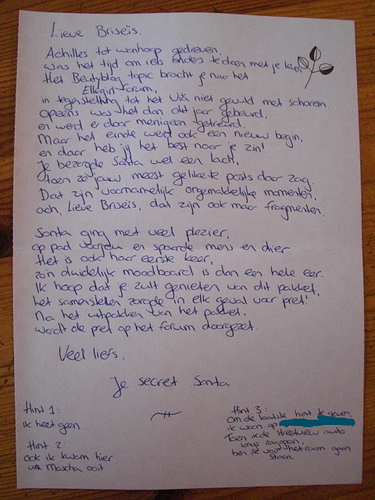 Lieve Briseïs.
Achilles tot wanhoop gedreven,
was het tijd om iets anders te doen met je leven
Het Beautyblog topic bracht je naar het
Ellegirl forum,
in tegenstelling tot het Vis niet gevuld met schorem
Opeens was het dan dit jaar gebeurd,
en werd er door menigeen getreurd.
Maar het einde werd ook een nieuw begin,
en daar heb jij het best naar je zin!
Je bezorgde Santa wel een lach,
toen ze jouw meest gelikete posts door zag
Dat zijn voornamelijk ongemakkelijke momenten,
och, Lieve Briseïs, dat zijn ook maar fragmenten.
Santa ging met veel plezier,
op pad voor jou en spaarde mens en dier
Het is ook haar eerste keer,
zo'n duidelijk moodboard is dan een hele eer.
Ik hoop dat je zult genieten van dit pakket,
het samenstellen zorgde in elk geval voor pret!
Na het uitpakken van het pakket,
wordt de pret op het forum doorgezet.
Veel liefs,
Je secret Santa
Hint 1:
ik heet geen
Hint 2:
ook ik kwam hier
via Mascha ooit
Hint 3:
Om de laatste hint te geven:
ik woon op
Toen ik de streetview auto
langs zag gaan,
ben ik voor het raam gaan
staan.